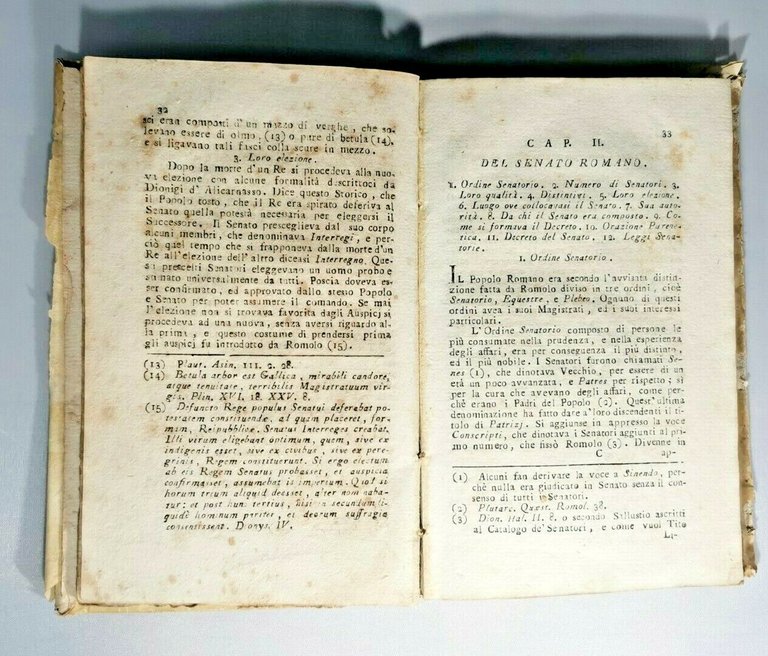 32
sci eran composti d'un mazzo di verghe, che so-
levano essere di olmo, (13) o pure di betula (14),
e si ligavano tali fasci colla scure in mezzo.
3. Loro elezione.
Dopo la morte d'un Re si procedeva alla nuo-
va elezione con alcune formalità descrittoci da
Dionigi d'Alicarnasso. Dice questo Storico, che
il Popolo tosto, che il Re era spirato deferiva al
Senato quella potestà necessaria per eleggersi il
Successore. Il Senato presceglieva dal suo corpo
alcuni membri, che denominava Interregi, e per-
ciò quel tempo che si frapponeva dalla morte d'un
Re all'elezione dell'altro diceasi Interregno. Que-
si prescelti Senatori eleggevano un uomo probo e
stimato universalmente da tutti. Poscia doveva es-
ser confirmato, ed approvato dallo stesso Popolo
e Senato per poter assumere il comando. Se mai
l'elezione non si trovava favorita dagli Auspicj si
procedeva ad una nuova, senza aversi riguardo al-
la prima, e questo costume di prendersi prima
gli auspicj fu introdotto da Romolo (15).
(13) Plaut. Asin. III. 2. 28.
(14) Betula arbor est Gallica, mirabili candore,
atque tenuitate, terribilis Magistratuum vir-
gis. Plin. XVI. 18. XXV. 8.
(15) Defuncto Rege populus Senatui deferebat po-
testatem constituendæ, ad quam placeret, for-
mam, Reipubblicæ. Senatus Interreges creabat.
Illi virum eligebant optimum, quem, sive ex
indigenis esset, sive ex civibus, sive ex pere-
grinis, Regem constituerunt. Si ergo electum
ab eis Regem Senatus probasset, et auspicia
confirmasset, assumebat is imperium. Quol si
horum trium aliquid deesset, alter nom naba-
tur: et post hunc tertius, nisi in secundum li-
quidè hominum pariter, et deorum suffragia
consentissent. Dionys. IV.
33
CAP. II.
DEL SENATO ROMANO.
1. Ordine Senatorio. 2. Numero di Senatori. 3.
Loro qualità. 4. Distintivi. 5. Loro elezione.
6. Luogo ove collocavasi il Senato. 7. Sua auto-
rità. 8. Da chi il Senato era composto. 9. Co-
me si formava il Decreto. 10. Orazione Parene-
tica. 11. Decreto del Senato. 12. Leggi Sena-
torie.
1. Ordine Senatorio.
IL Popolo Romano era secondo l'avvisata distin-
zione fatta da Romolo diviso in tre ordini, cioè
Senatorio, Equestre, e Plebeo. Ognuno di questi
ordini avea i suoi Magistrati, ed i suoi interessi
particolari.
L'Ordine Senatorio composto di persone le
più consumate nella prudenza, e nella esperienza
degli affari, era per conseguenza il più distinto,
ed il più nobile. I Senatori furono chiamati Se-
nes (1), che dinotava Vecchio, per essere di un
età un poco avvanzata, e Patres per rispetto; si
per la cura che avevano degli affari, come per-
chè erano i Padri del Popolo (2). Quest'ultima
denominazione ha fatto dare a'loro discendenti il ti-
tolo di Patrizj. Si aggiunse in appresso la voce
Conscripti, che dinotava i Senatori aggiunti al pri-
mo numero, che fissò Romolo (3). Divenne in
C ap-
(1) Alcuni fan derivare la voce a Sinendo, per-
chè nulla era giudicato in Senato senza il con-
senso di tutti i Senatori.
(2) Plutarc. Quæst. Romol. 38.
(3) Dion. Hal. II. 8. o secondo Sallustio ascritti
al Catalogo de'Senatori, e come vuol Tito
Li-